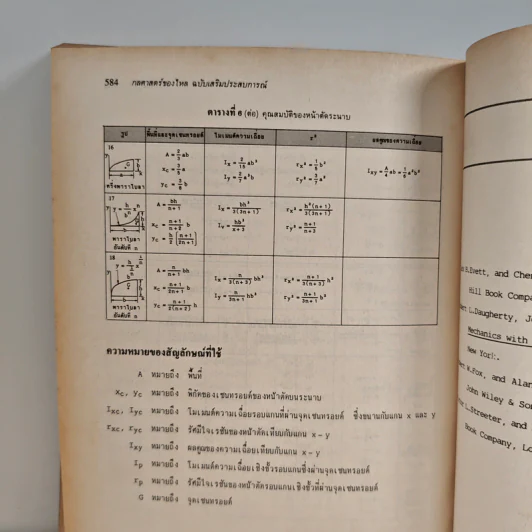 584 กลศาสตร์ของไหล ฉบับเสริมประสบการณ์
ตารางที่ 8 (ต่อ) คุณสมบัติของหน้าตัดระนาบ
รูป พื้นที่และจุดเซนทรอยด์ โมเมนต์ความเฉื่อย r² ผลคูณของความเฉื่อย
16
A = 2/3 ab
xc = 3/5 a
yc = 3/8 b
Ix = 2/15 ab³
Iy = 2/7 a³b
rx² = 1/5 b²
ry² = 3/7 a²
Ixy = A/4 ab = 1/6 a²b²
ครึ่งพาราโบลา
17
A = bh/n+1
xc = n+1/n+2 b
yc = h/2 [n+1/2n+1]
Ix = bh³/3(3n+1)
Iy = hb³/n+3
rx² = h²(n+1)/3(3n+1)
ry² = n+1/n+3
พาราโบลา
อันดับที่ n
18
A = n/n+1 bh
xc = n+1/2n+1 b
yc = n+1/2(n+2) h
Ix = n/3(n+3) bh³
Iy = n/3n+1 hb³
rx² = n+1/3(n+3) h²
ry² = n+1/3n+1 b²
พาราโบลา
อันดับที่ n
ความหมายของสัญลักษณ์ที่ใช้
A หมายถึง พื้นที่
xc, yc หมายถึง พิกัดของเซนทรอยด์ของหน้าตัดบนระนาบ
Ixc, Iyc หมายถึง โมเมนต์ความเฉื่อยรอบแกนที่ผ่านจุดเซนทรอยด์ ซึ่งขนานกับแกน x และ y
rxc, ryc หมายถึง รัศมีไจเรชันของหน้าตัดเทียบกับแกน x - y
Ixy หมายถึง ผลคูณของความเฉื่อยเทียบกับแกน x - y
Ip หมายถึง โมเมนต์ความเฉื่อยเชิงขั้วรอบแกนซึ่งผ่านจุดเซนทรอยด์
rp หมายถึง รัศมีไจเรชันของหน้าตัดรอบแกนเชิงขั้วที่ผ่านจุดเซนทรอยด์
G หมายถึง จุดเซนทรอยด์
B.Evett, and Chen
Hill Book Compa
L.Daugherty, J
Mechanics with
New York:
W.Fox, and Alan
John Wiley & So
L.Streeter, and
Book Company, Lo